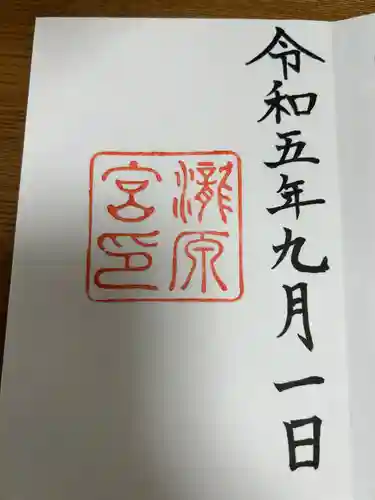 令和五年九月一日
瀧原
宮印